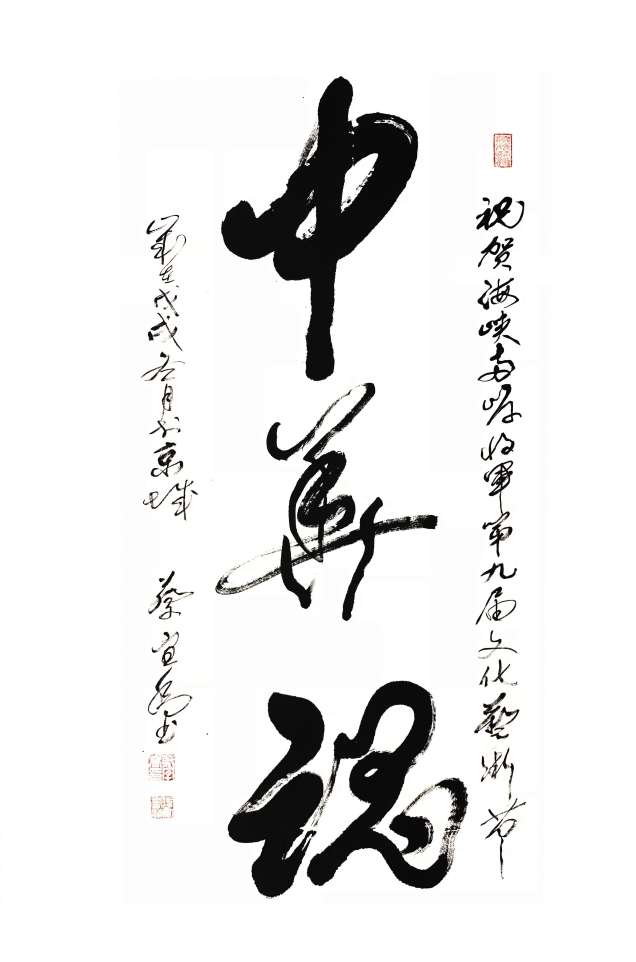 祝贺海峡两岸将军第九届文化藝術节
中華魂
歲在戊戌冬月於京城
蔡宜书